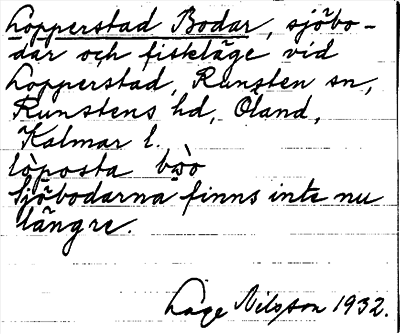 Lopperstad Bodar, sjöbo-
dar och fiskläge vid
Lopperstad, Runsten sn,
Runstens hd, Öland,
Kalmar l.
lòposta
Sjöbodarna finns inte nu
längre.
Lage Nilsson 1932.